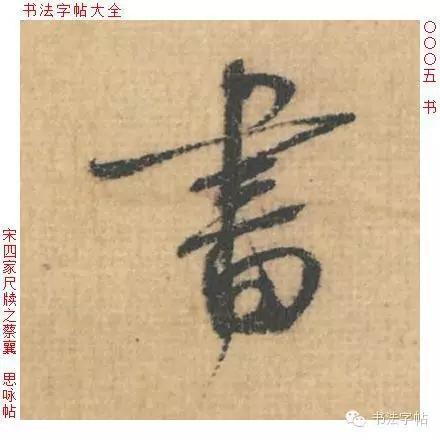 书法字帖大全
〇〇〇五 书
書
宋四家尺牍之蔡襄 思咏帖
书法字帖